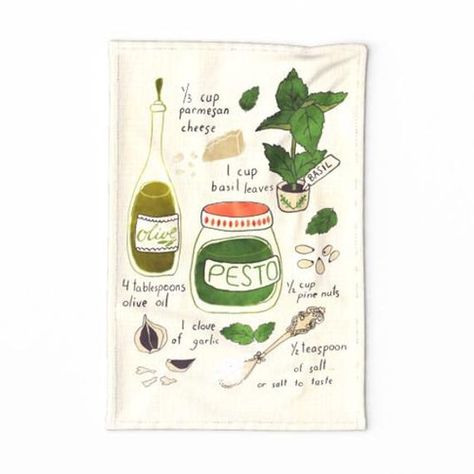 1/3 cup
parmesan
cheese
1 cup
basil leaves
BASIL
Olive
PESTO
4 tablespoons
olive oil
1/2 cup
pine nuts
1 clove
of garlic
1/2 teaspoon
of salt
or salt to taste